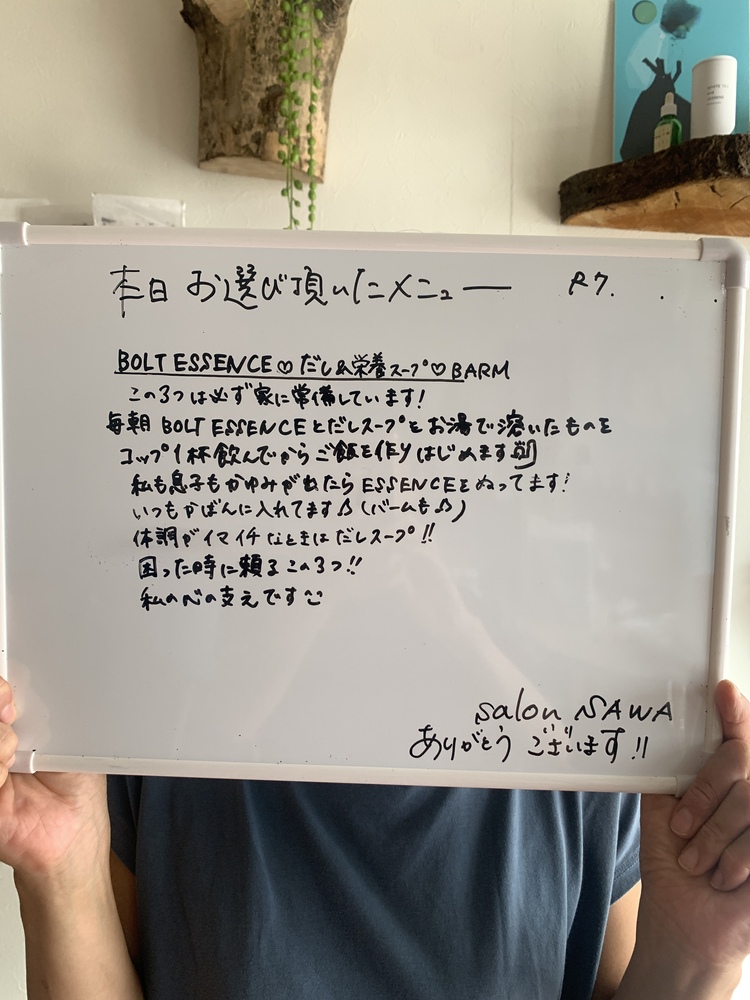 本日 お選び頂いたメニュー R7. .
BOLT ESSENCE♡だし&栄養スープ♡BARM
この3つは必ず家に常備しています!
毎朝 BOLT ESSENCEとだしスープをお湯で溶いたものを
コップ1杯飲んでからご飯を作りはじめます
私も息子もかゆみがでたらESSENCEをぬってます!
いつもかばんに入れてます♪(バームも♪)
体調がイマイチなときはだしスープ!!
困った時に頼るこの3つ!!
私の心の支えです
salon SAWA
ありがとうございます!!